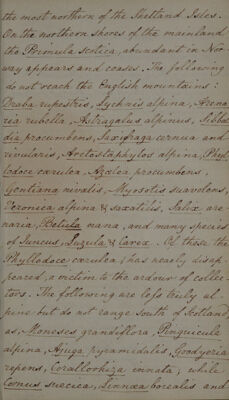 the most northern of the Shetland Isles.
On the northern shores of the mainland
the Primula scotica, abundant in Nor
way appears and ceases. The following
do not reach the English mountains:
Draba rupestris, Lychnis alpina, Arena
ria rubella, Astragalus alpinus, Sibbal
dia procumbens, Saxifraga cernua and
rivularis, Arctostaphylos alpina, Phyl
lodoce cœrulea, Azalea procumbens,
Gentiana nivalis, Myosotis suaveolens,
Veronica alpina & saxatilis, Salix are
naria, Betula nana, and many species
of Juncus, Luzula & Carex. Of these the
Phyllodoce cœrulea, has nearly disap
peared, a victim to the ardour of collec
tors. The following are less truly al
pine but do not range south of Scotland,
as, Moneses grandiflora, Pinguicula
alpina, Ajuga pyramidalis, Goodyeria
repens, Corallorhiza innata, while
Cornus suecica, Linnæa borealis and